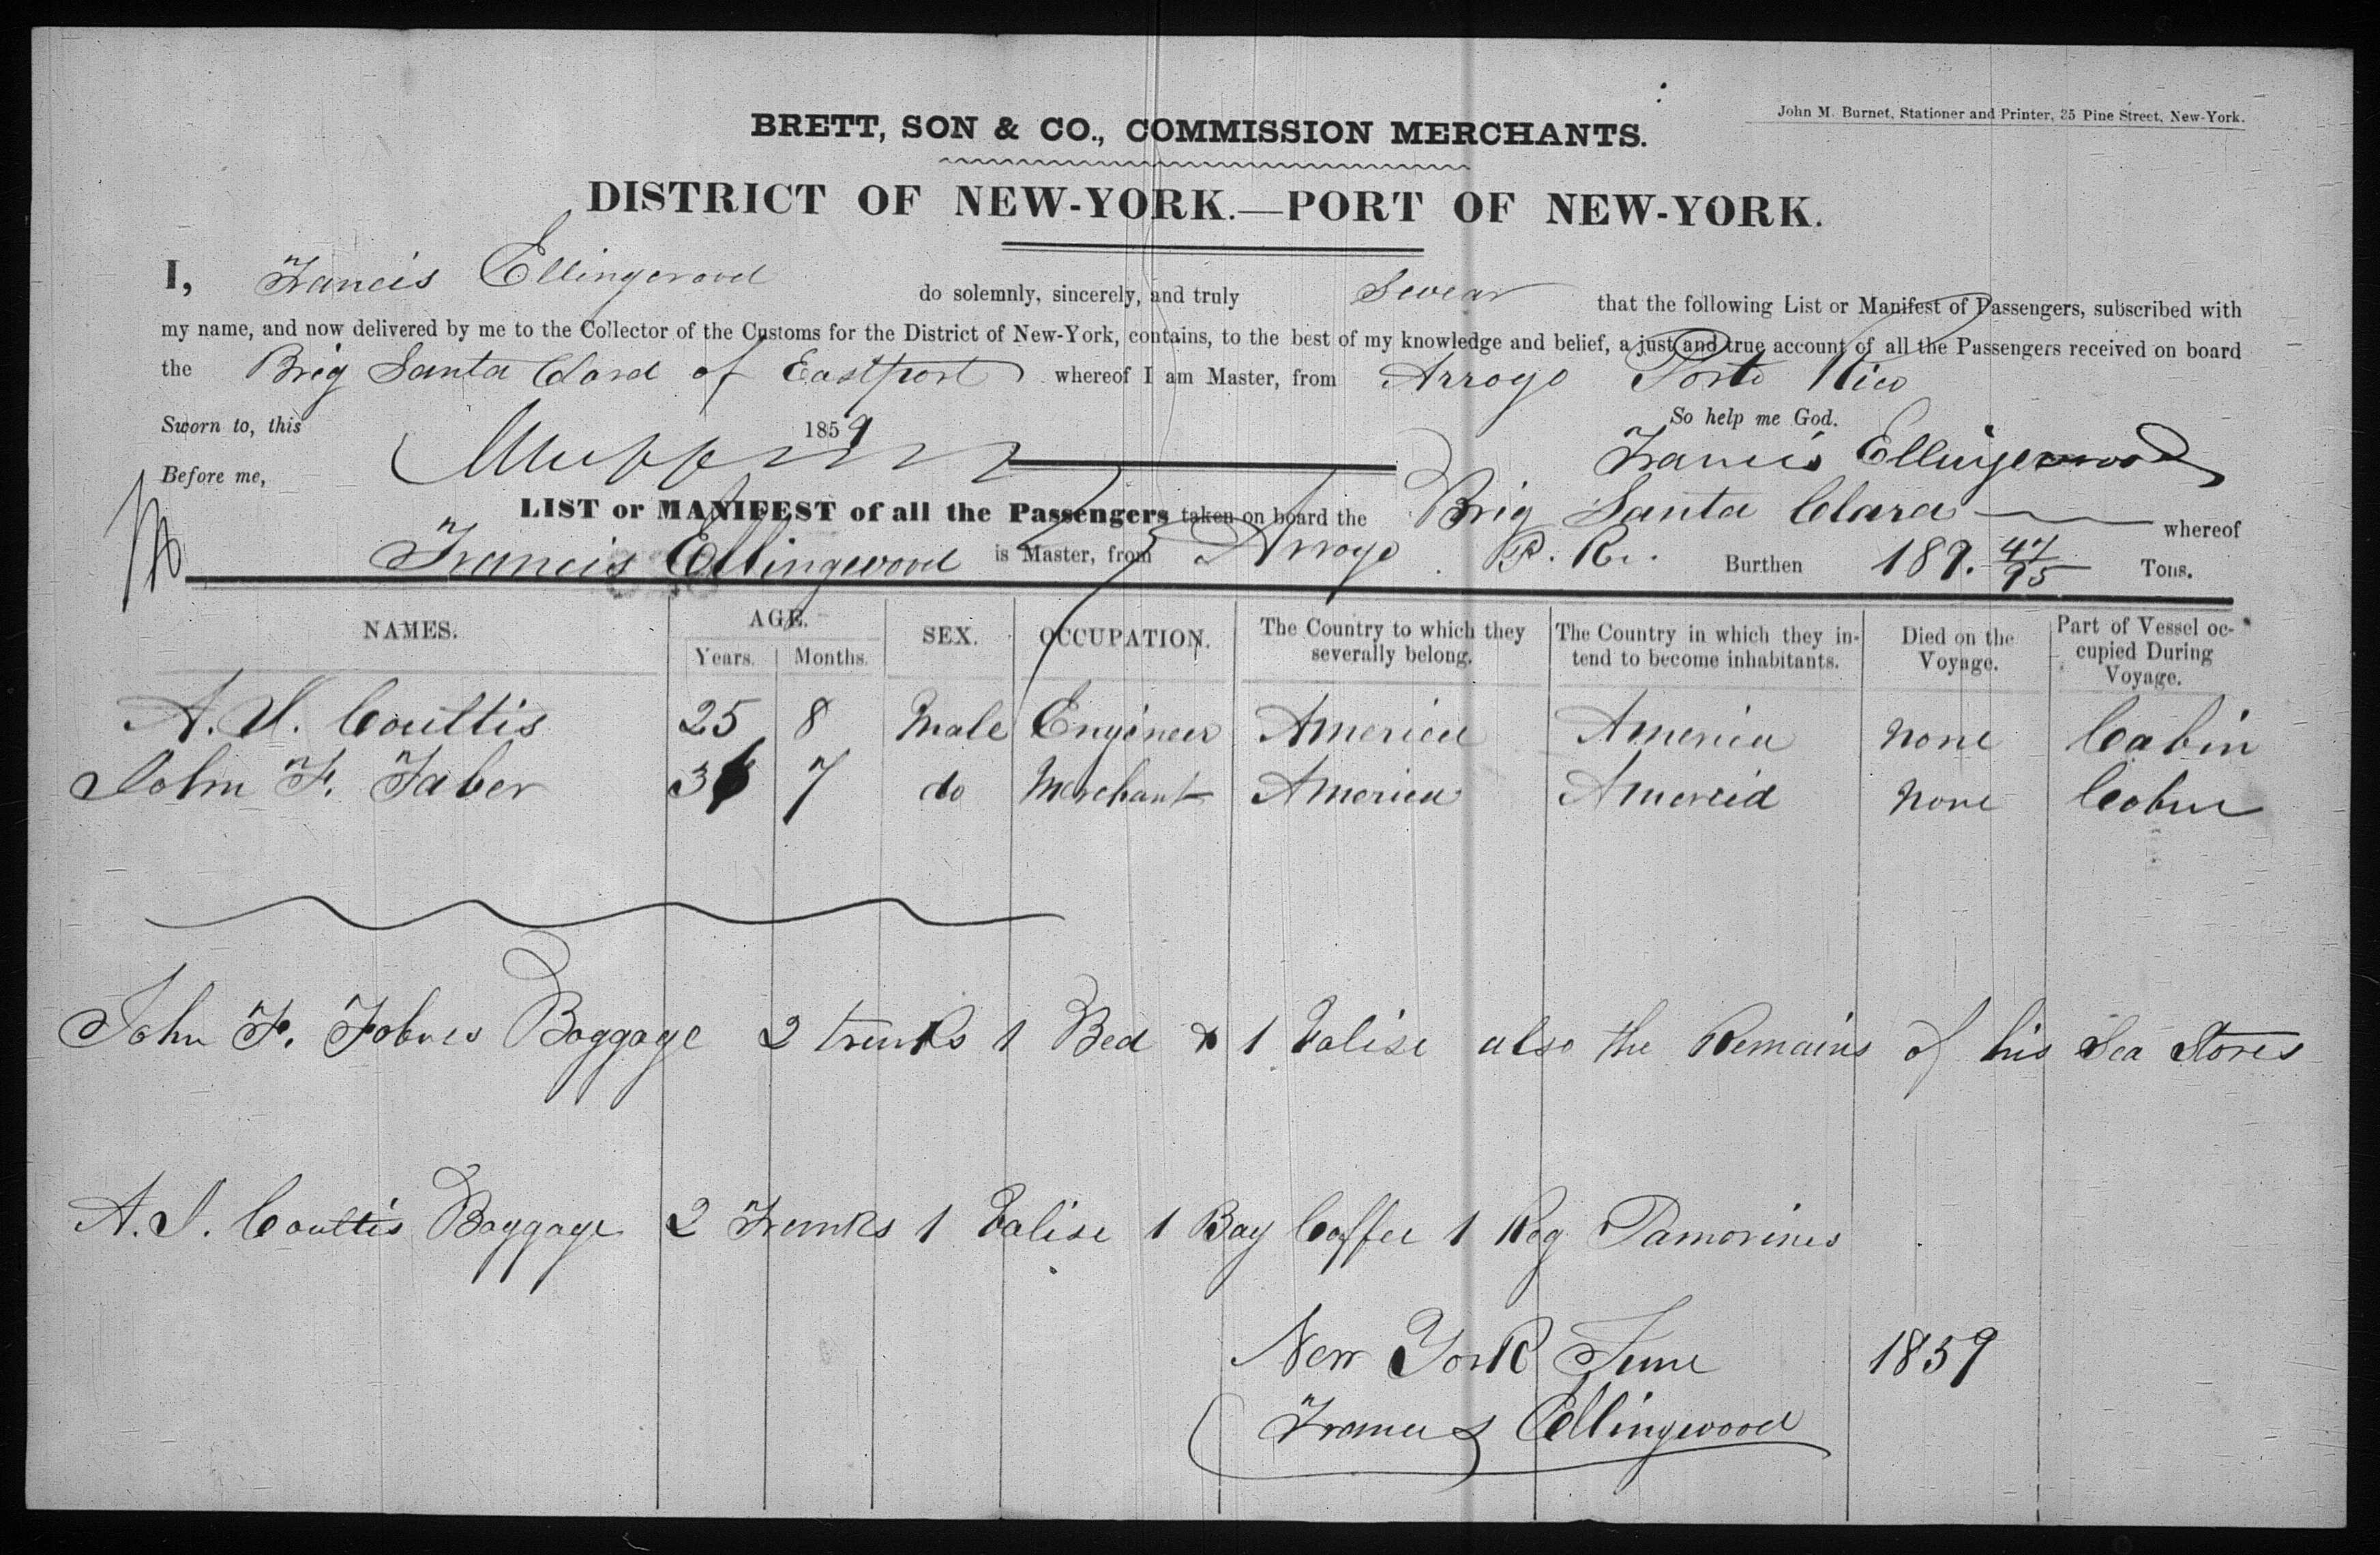 John M. Burnet, Stationer and Printer, 35 Pine Street, New-York.
BRETT, SON & CO., COMMISSION MERCHANTS.
DISTRICT OF NEW-YORK.—PORT OF NEW-YORK.
I, Francis Ellingwood do solemnly, sincerely, and truly Swear that the following List or Manifest of Passengers, subscribed with
my name, and now delivered by me to the Collector of the Customs for the District of New-York, contains, to the best of my knowledge and belief, a just and true account of all the Passengers received on board
the Brig Santa Clara of Eastport whereof I am Master, from Arroyo Porto Rico
Sworn to, this 1859 So help me God.
Before me, Francis Ellingewood
LIST or MANIFEST of all the Passengers taken on board the Brig Santa Clara whereof
Francis Ellingwood is Master, from Arroyo P. R. Burthen 189. 47/95 Tons.
NAMES. AGE. Years. Months. SEX. OCCUPATION. The Country to which they severally belong. The Country in which they intend to become inhabitants. Died on the Voyage. Part of Vessel occupied During Voyage.
A. Coultis 25 8 Male Engineer America America none Cabin
John F. Faber 7 do Merchant America America none Cabin
John F. Fabers Baggage 2 trunks 1 Bed & 1 Valise also the Remains of his Sea Stores
A. J. Coultis Baggage 2 Trunks 1 Valise 1 Bag Coffee 1 Keg Tamorines
New York June 1859
Francis Ellingwood